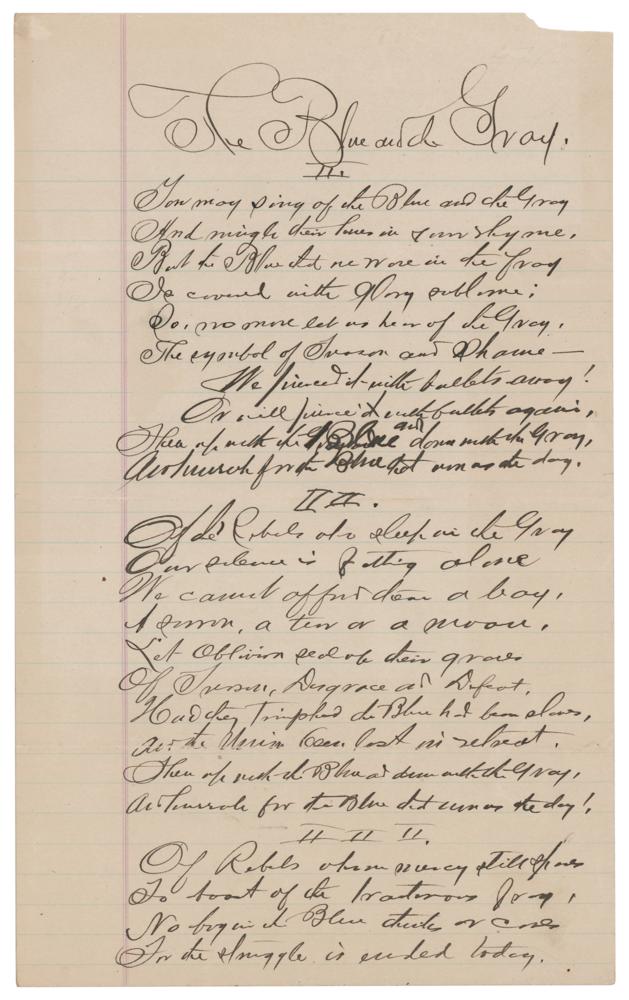 The Blue and the Gray.
II.
You may sing of the Blue and the Gray
And mingle their hues in your rhyme,
But the Blue that we wore in the fray
Is covered with glory sublime;
So, no more let us hear of the Gray,
The symbol of Treason and Shame—
We pierced it with bullets away!
Or will pierce it with bullets again,
Then up with the Blue and down with the Gray,
And hurrah for the Blue that won us the day.
II II.
Of de' Rebels who sleep in the Gray
Our silence is fitting alone
We cannot afford them a bay,
A sorrow, a tear or a moan,
Let Oblivion seal up their graves
Of Treason, Disgrace and Defeat,
Had they Triumphed the Blue had been slaves,
And the Union been lost in retreat.
Then up with the Blue and down with the Gray,
And hurrah for the Blue that won us the day!,
II II II.
Of Rebels whom mercy still spares
To boast of the traitorous fray,
No boy in the Blue thinks or cares
For the struggle is ended today.